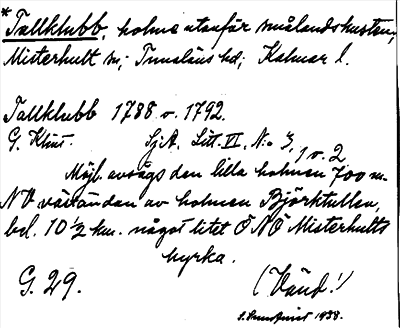 * Tallklubb, holme utanför smålandskusten,
Misterhult sn; Tunaläns hd; Kalmar l.
Tallklubb 1788 o. 1792.
G. Klint. Sj.A. Lit. VI, N:o 3, 1 o. 2
Möjl. avsågs den lilla holmen 700 m.
NV väständan av holmen Björktullen,
bel. 10 1/2 km. något litet ÖNÖ Misterhults
kyrka.
G. 29. (Vänd!)
1938.